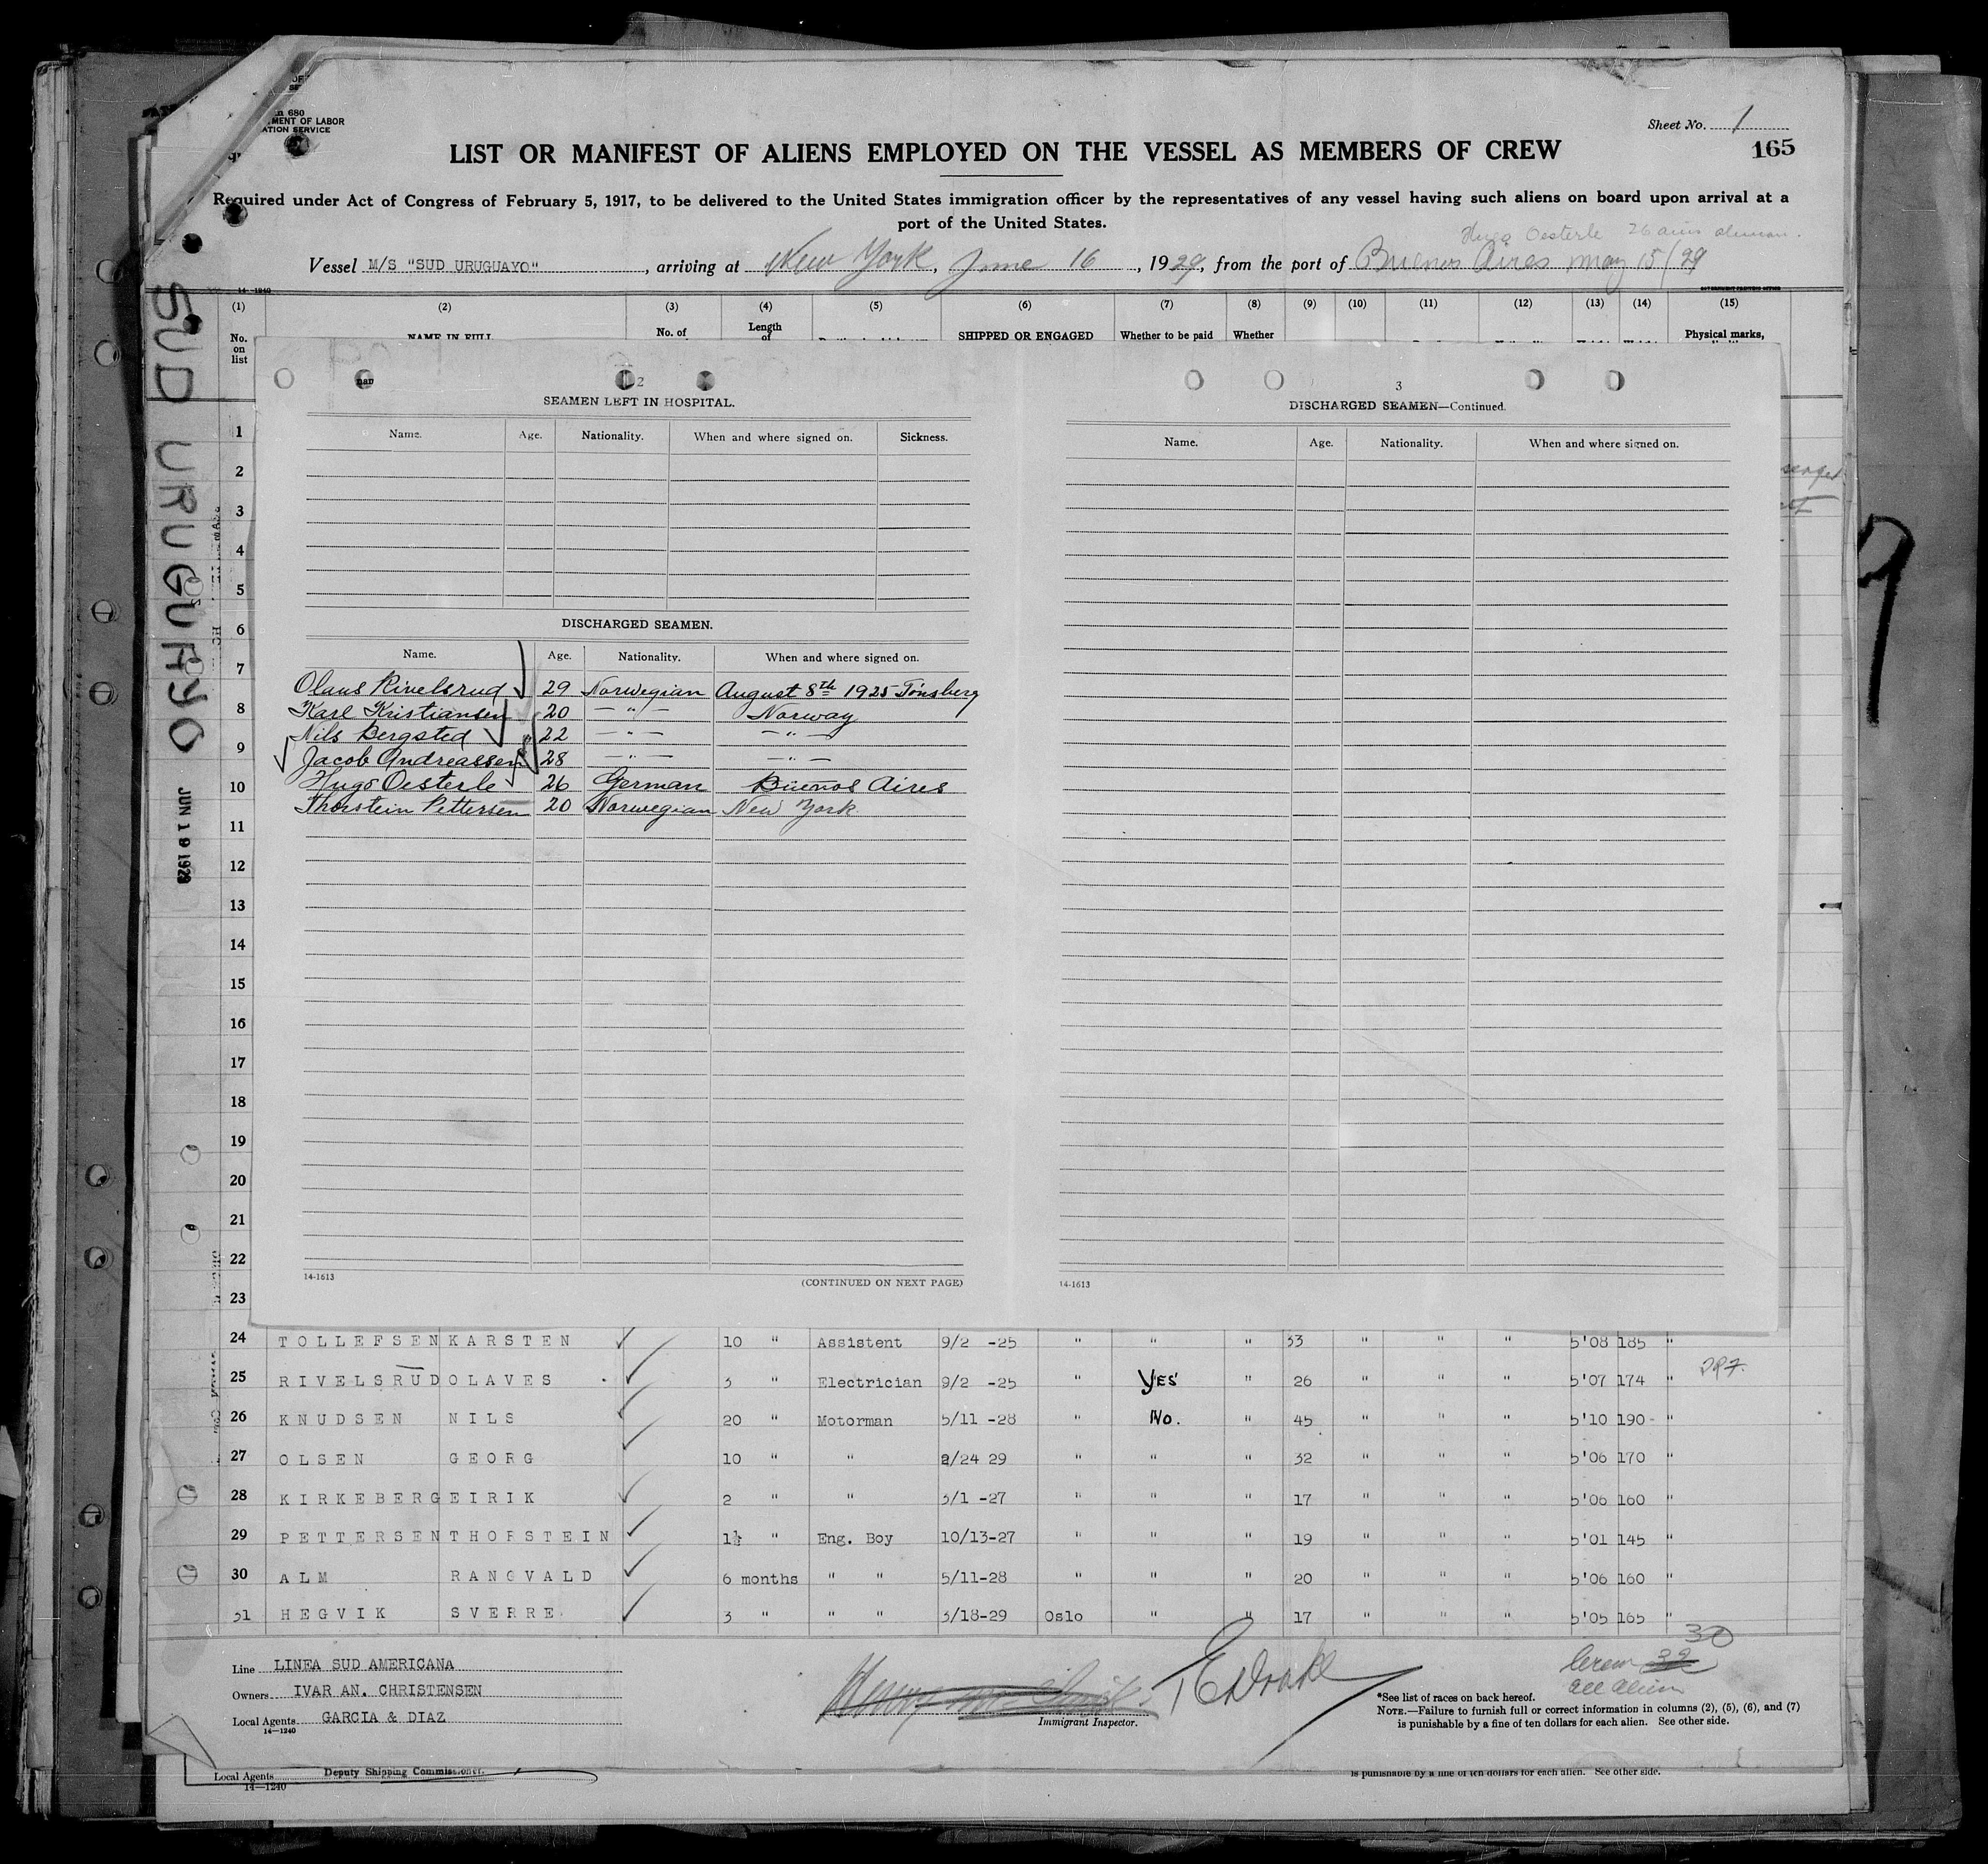 680
MENT OF LABOR
ATION SERVICE
Sheet No. 1
165
LIST OR MANIFEST OF ALIENS EMPLOYED ON THE VESSEL AS MEMBERS OF CREW
Required under Act of Congress of February 5, 1917, to be delivered to the United States immigration officer by the representatives of any vessel having such aliens on board upon arrival at a
port of the United States.
Hugo Oesterle 26
Vessel M/S "SUD URUGUAYO", arriving at New York, June 16, 1929, from the port of Buenos Aires may 15/29
14-1240
(1) (2) (3) (4) (5) (6) (7) (8) (9) (10) (11) (12) (13) (14) (15)
No. on list NAME IN FULL No. of Length of SHIPPED OR ENGAGED Whether to be paid Whether Physical marks,
SUD URUGUAYO
JUN 19 1929
2
SEAMEN LEFT IN HOSPITAL.
Name. Age. Nationality. When and where signed on. Sickness.
DISCHARGED SEAMEN.
Name. Age. Nationality. When and where signed on.
Olaus Rivelsrud 29 Norwegian August 8th 1925 Tönsberg
Karl Kristiansen 20 —"— Norway
Nils Bergsted 22 —"— —"—
Jacob Andreassen 28 —"— —"—
Hugo Oesterle 26 German Buenos Aires
Thorstein Pettersen 20 Norwegian New York
14-1613
(CONTINUED ON NEXT PAGE)
3
DISCHARGED SEAMEN—Continued.
Name. Age. Nationality. When and where signed on.
14-1613
1
2
3
4
5
6
7
8
9
10
11
12
13
14
15
16
17
18
19
20
21
22
23
24 TOLLEFSEN KARSTEN 10 " Assistent 9/2 -25 " " " 33 " " " 5'08 185 "
25 RIVELSRUD OLAVES 3 " Electrician 9/2 -25 " YES " 26 " " " 5'07 174 "
26 KNUDSEN NILS 20 " Motorman 5/11 -28 " No. " 45 " " " 5'10 190 "
27 OLSEN GEORG 10 " " 2/24 29 " " " 32 " " " 5'06 170 "
28 KIRKEBERG EIRIK 2 " " 3/1 -27 " " " 17 " " " 5'06 160 "
29 PETTERSEN THORSTEIN 1½ " Eng. Boy 10/13-27 " " " 19 " " " 5'01 145 "
30 ALM RANGVALD 6 months " " 5/11-28 " " " 20 " " " 5'06 160 "
31 HEGVIK SVERRE 3 " " " 3/18-29 Oslo " " 17 " " " 5'05 165 "
30
Crew 32
all alien
Line LINEA SUD AMERICANA
Owners IVAR AN. CHRISTENSEN
Local Agents GARCIA & DIAZ
14—1240
Immigrant Inspector.
*See list of races on back hereof.
NOTE.—Failure to furnish full or correct information in columns (2), (5), (6), and (7)
is punishable by a fine of ten dollars for each alien. See other side.
Local Agents
14—1240
Deputy Shipping Commissioner.
is punishable by a fine of ten dollars for each alien. See other side.